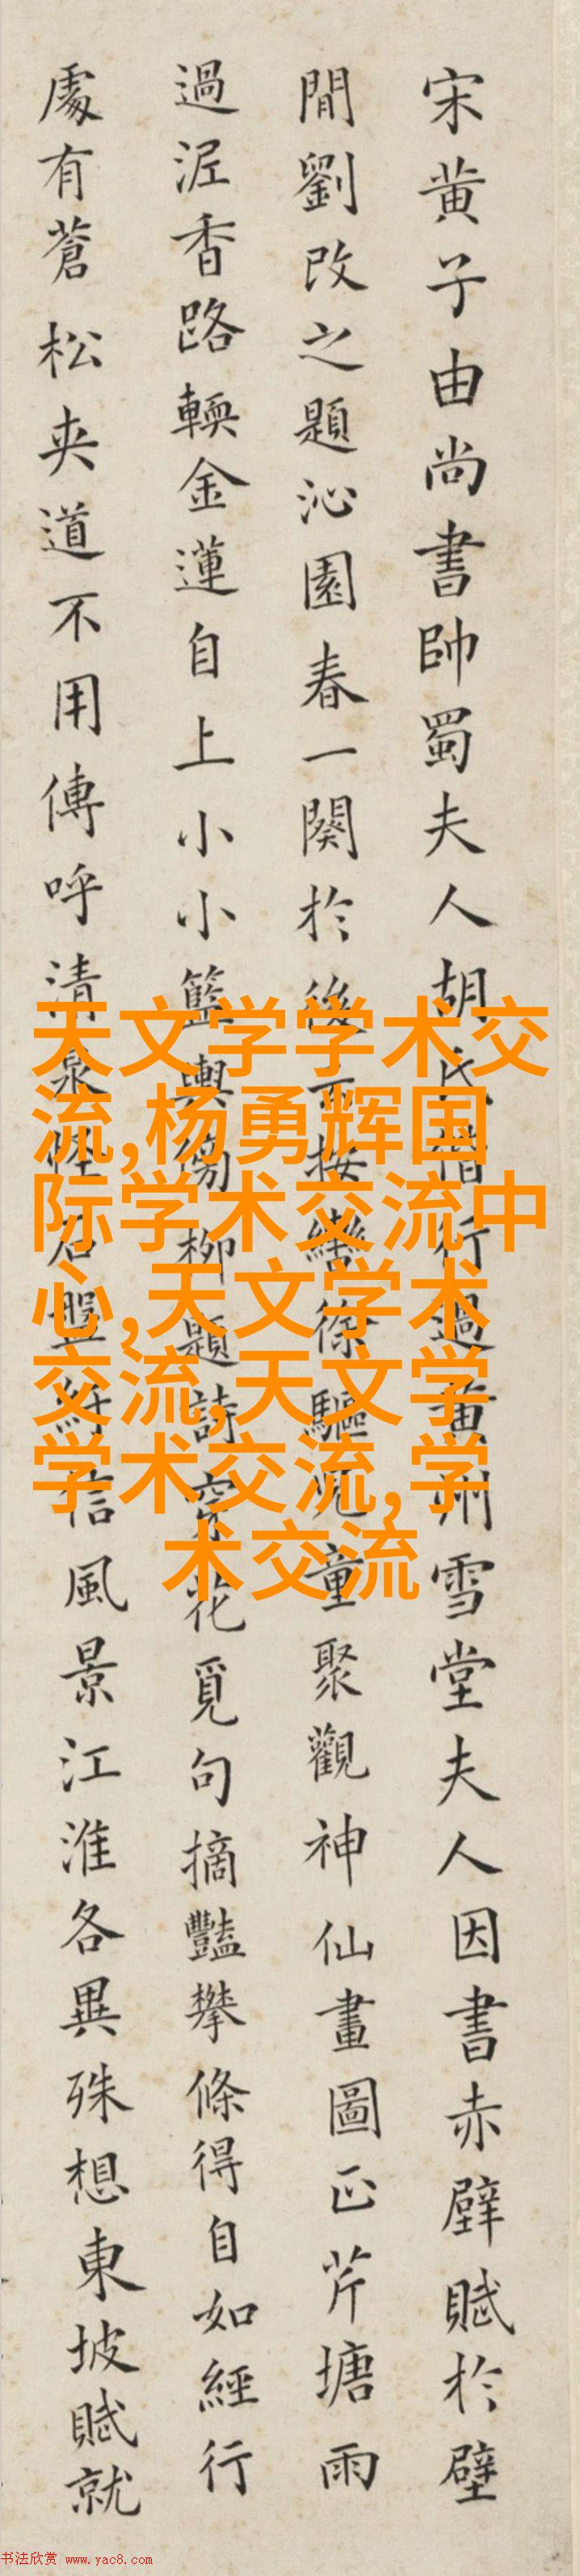 宋黄子由尚書帥蜀夫人胡氏偕行過黄州雪堂夫人因書赤壁賦於壁
間劉改之題沁園春一闋於後云按轡徐驅兒童聚觀神仙畫圖正芹塘雨
過泥香路輭金蓮自上小小籃輿傍柳題詩穿花覓句摘豔攀條得自如經行
處有蒼松夾道不用傳呼清泉怪石盤紆信風景江淮各異殊想東坡賦就
天文学学术交
流,杨勇辉国
际学术交流中
心,天文学术
交流,天文学
学术交流,学
术交流
书法欣赏 www.yac8.com